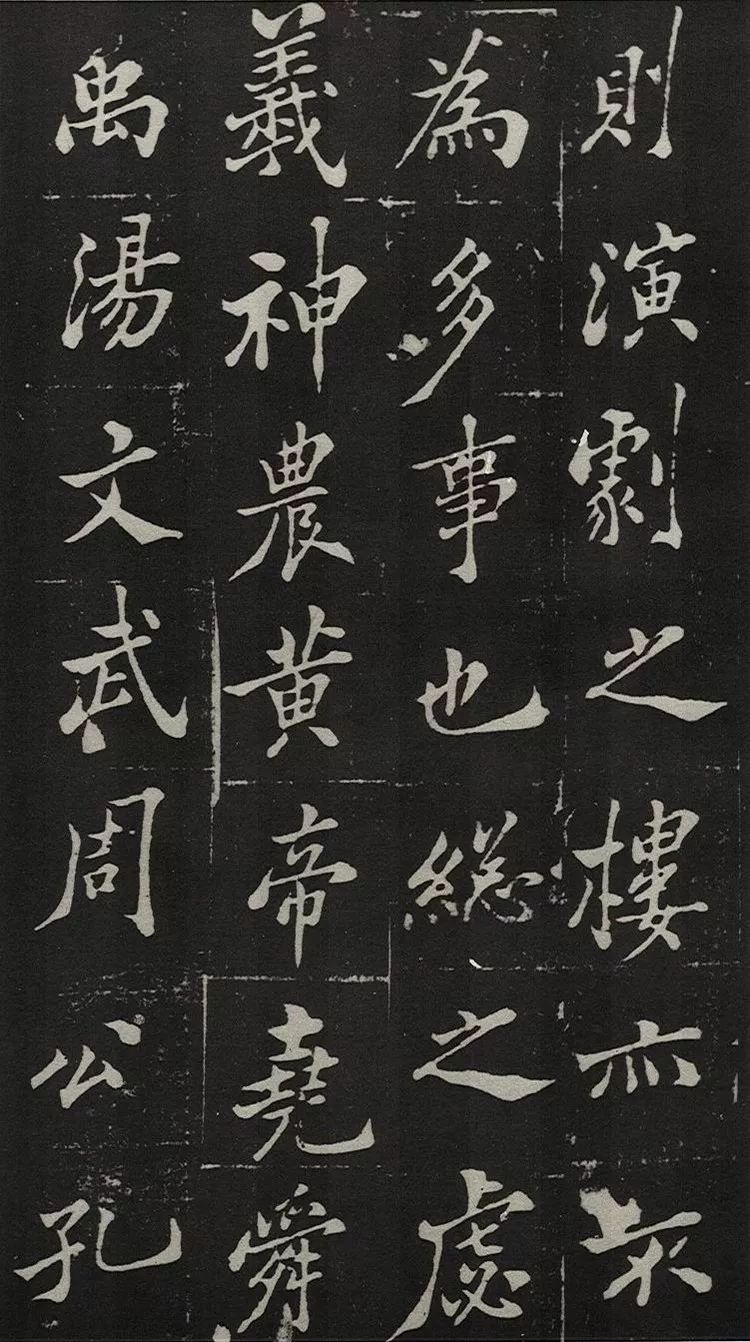 則演劇之樓亦不
為多事也総之虙
羲神農黃帝堯舜
禹湯文武周公孔